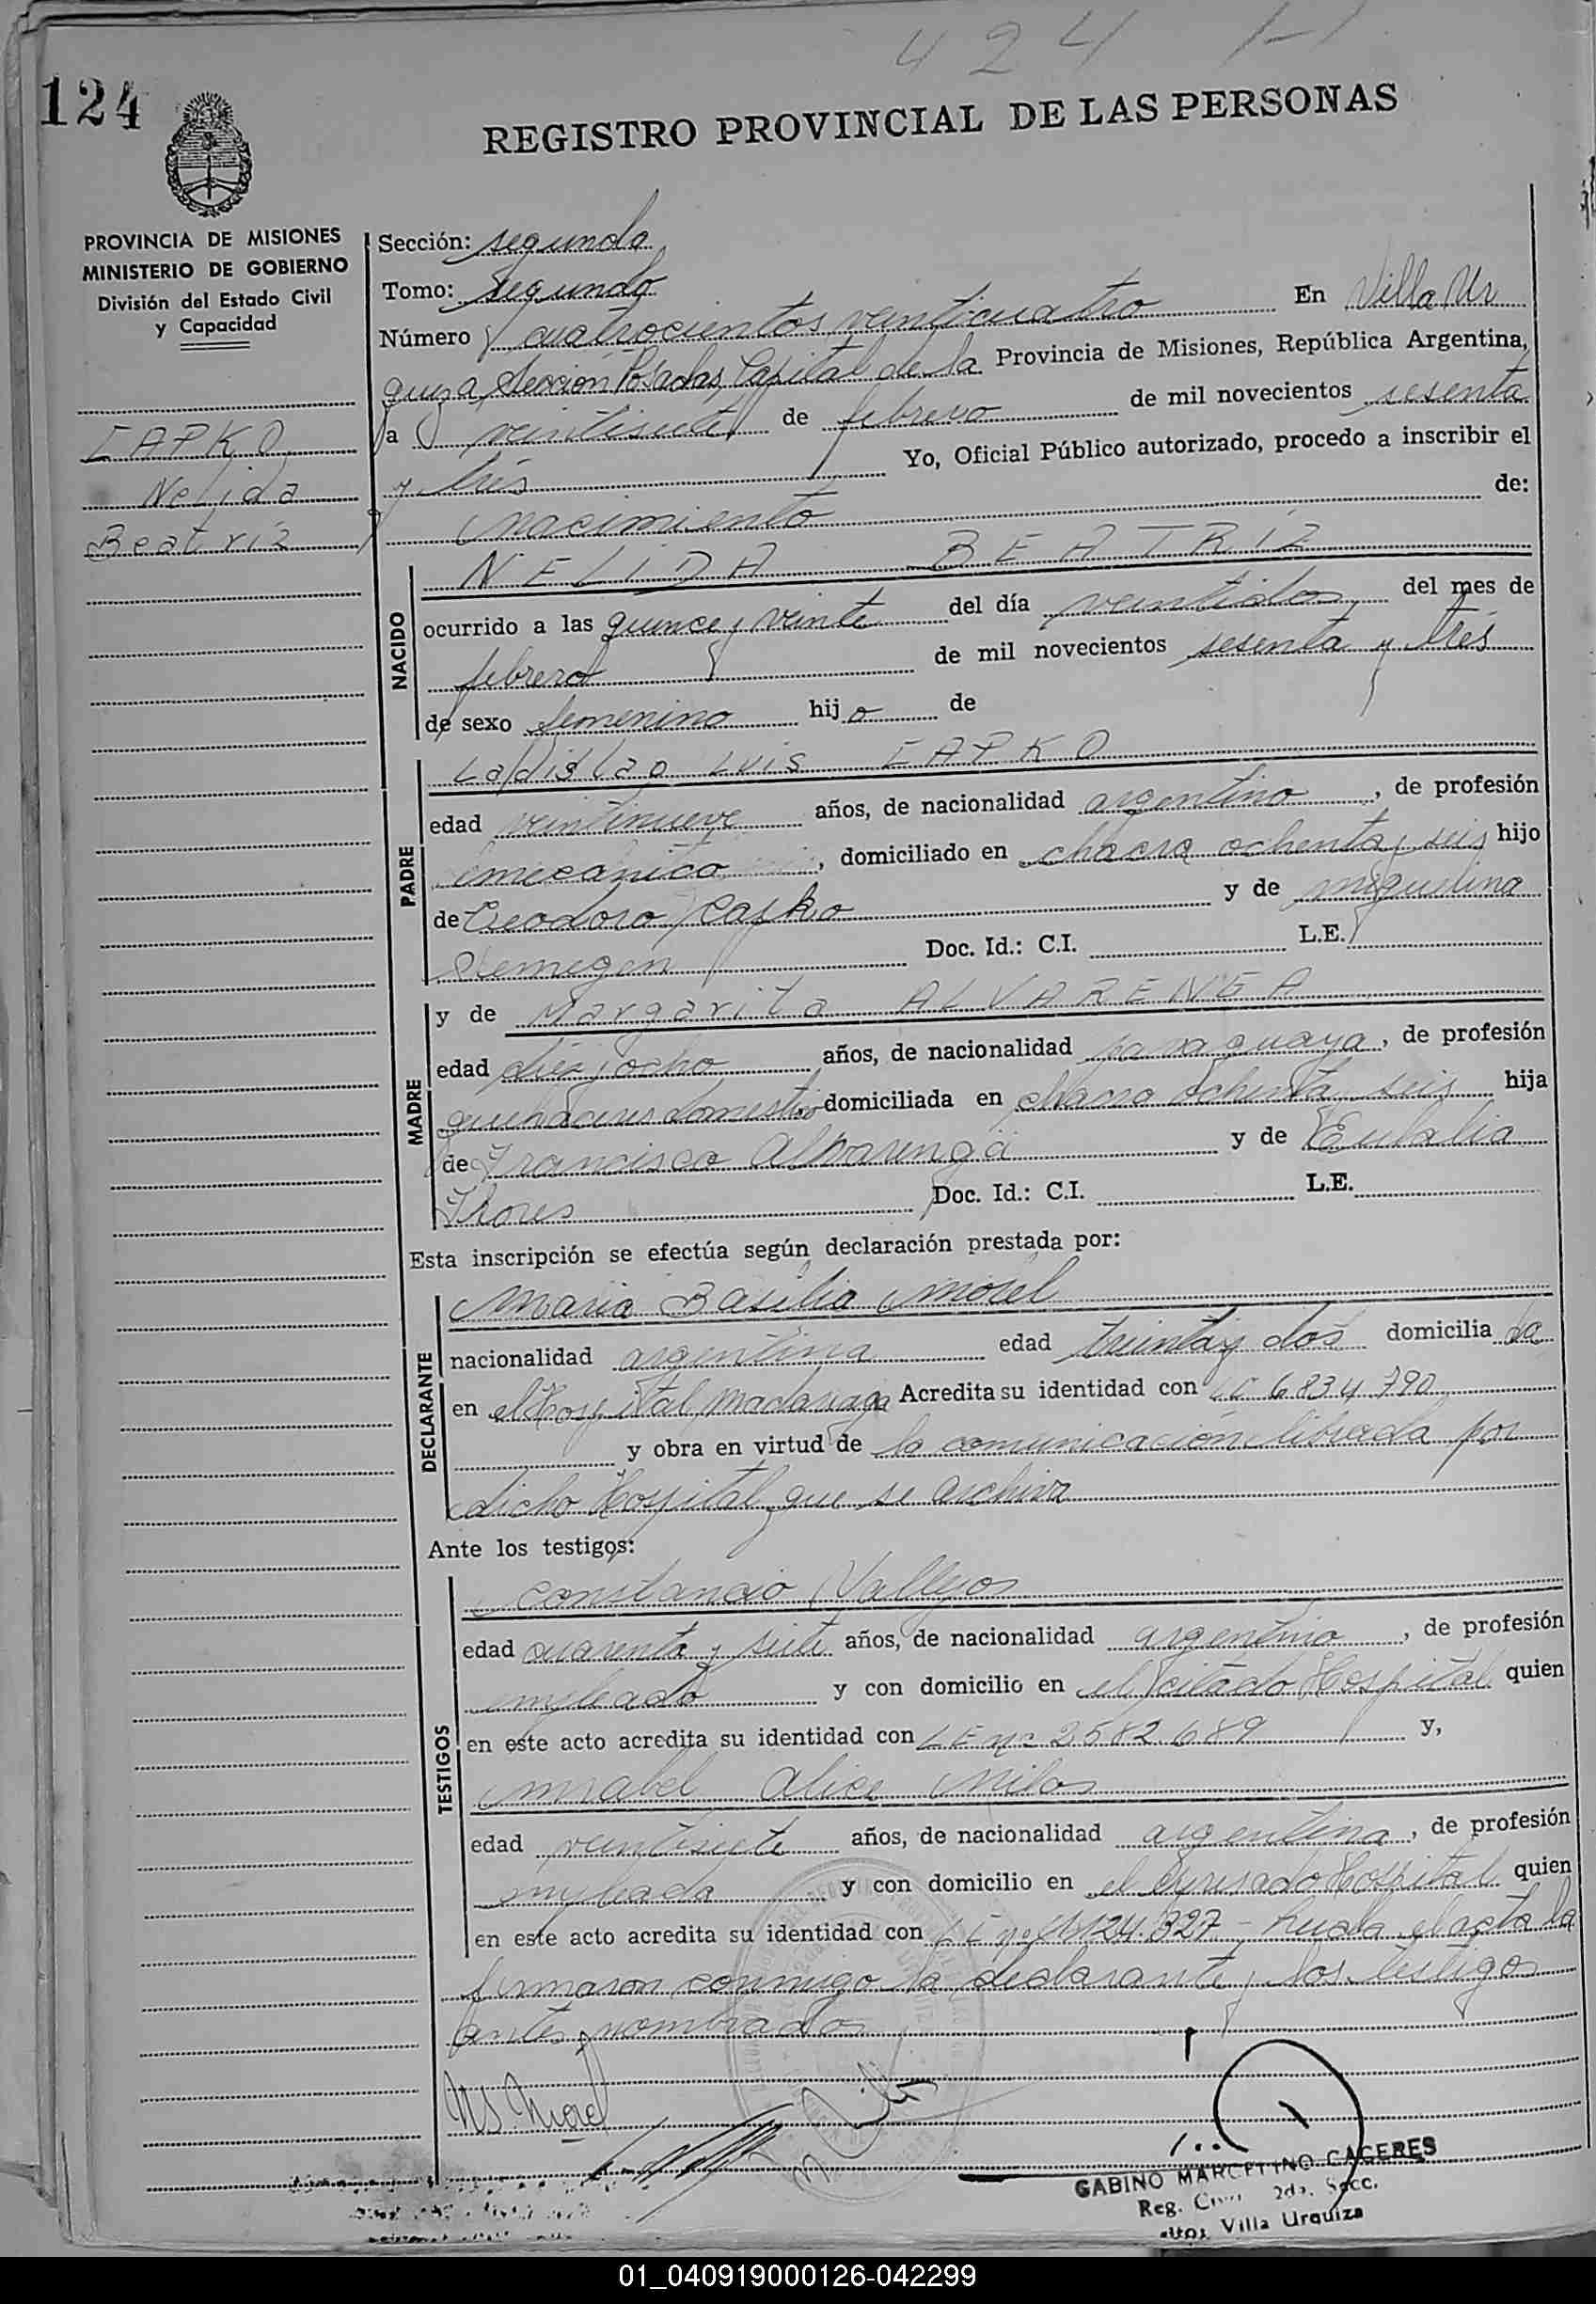 424
124
REGISTRO PROVINCIAL DE LAS PERSONAS
PROVINCIA DE MISIONES
MINISTERIO DE GOBIERNO
División del Estado Civil
y Capacidad
CAPKO
Nelida
Beatriz
Sección: segunda
Tomo: segundo
Número cuatrocientos veinticuatro En Villa Ur
quiza, Sección Posadas, Capital de la Provincia de Misiones, República Argentina,
a veintisiete de febrero de mil novecientos sesenta
y tres Yo, Oficial Público autorizado, procedo a inscribir el
nacimiento de:
NACIDO
NELIDA BEATRIZ
ocurrido a las quince y veinte del día veintidos, del mes de
febrero de mil novecientos sesenta y tres
de sexo femenino hijo de
PADRE
Ladislao Luis CAPKO
edad veintinueve años, de nacionalidad argentino, de profesión
mecanico, domiciliado en chacra ochenta y seis hijo
de Teodoro Capko y de Miguelina
Doc. Id.: C.I. L.E.
MADRE
y de Margarita ALVARENGA
edad diez y ocho años, de nacionalidad paraguaya, de profesión
quehaceres domesticos domiciliada en chacra ochenta seis hija
de Francisco Albarenga y de Eulalia
Flores Doc. Id.: C.I. L.E.
Esta inscripción se efectúa según declaración prestada por:
DECLARANTE
Maria Basilia Morel
nacionalidad argentina edad treinta y dos domiciliada
en el Hospital Madariaga Acredita su identidad con LC 6834790
y obra en virtud de la comunicación librada por
dicho Hospital que se archiva
Ante los testigos:
TESTIGOS
Constancio Vallejos
edad cuarenta y siete años, de nacionalidad argentino, de profesión
empleado y con domicilio en el citado Hospital quien
en este acto acredita su identidad con LE nº 2582689 y,
Mabel Alice Milos
edad veintisiete años, de nacionalidad argentina, de profesión
empleada y con domicilio en el expresado Hospital quien
en este acto acredita su identidad con 124.327 - Leida el acta la
firmaron conmigo la declarante y los testigos
antes nombrados
M B Morel
GABINO MARCELINO CACERES
Reg. Civil 2da. Secc.
Villa Urquiza
01_040919000126-042299